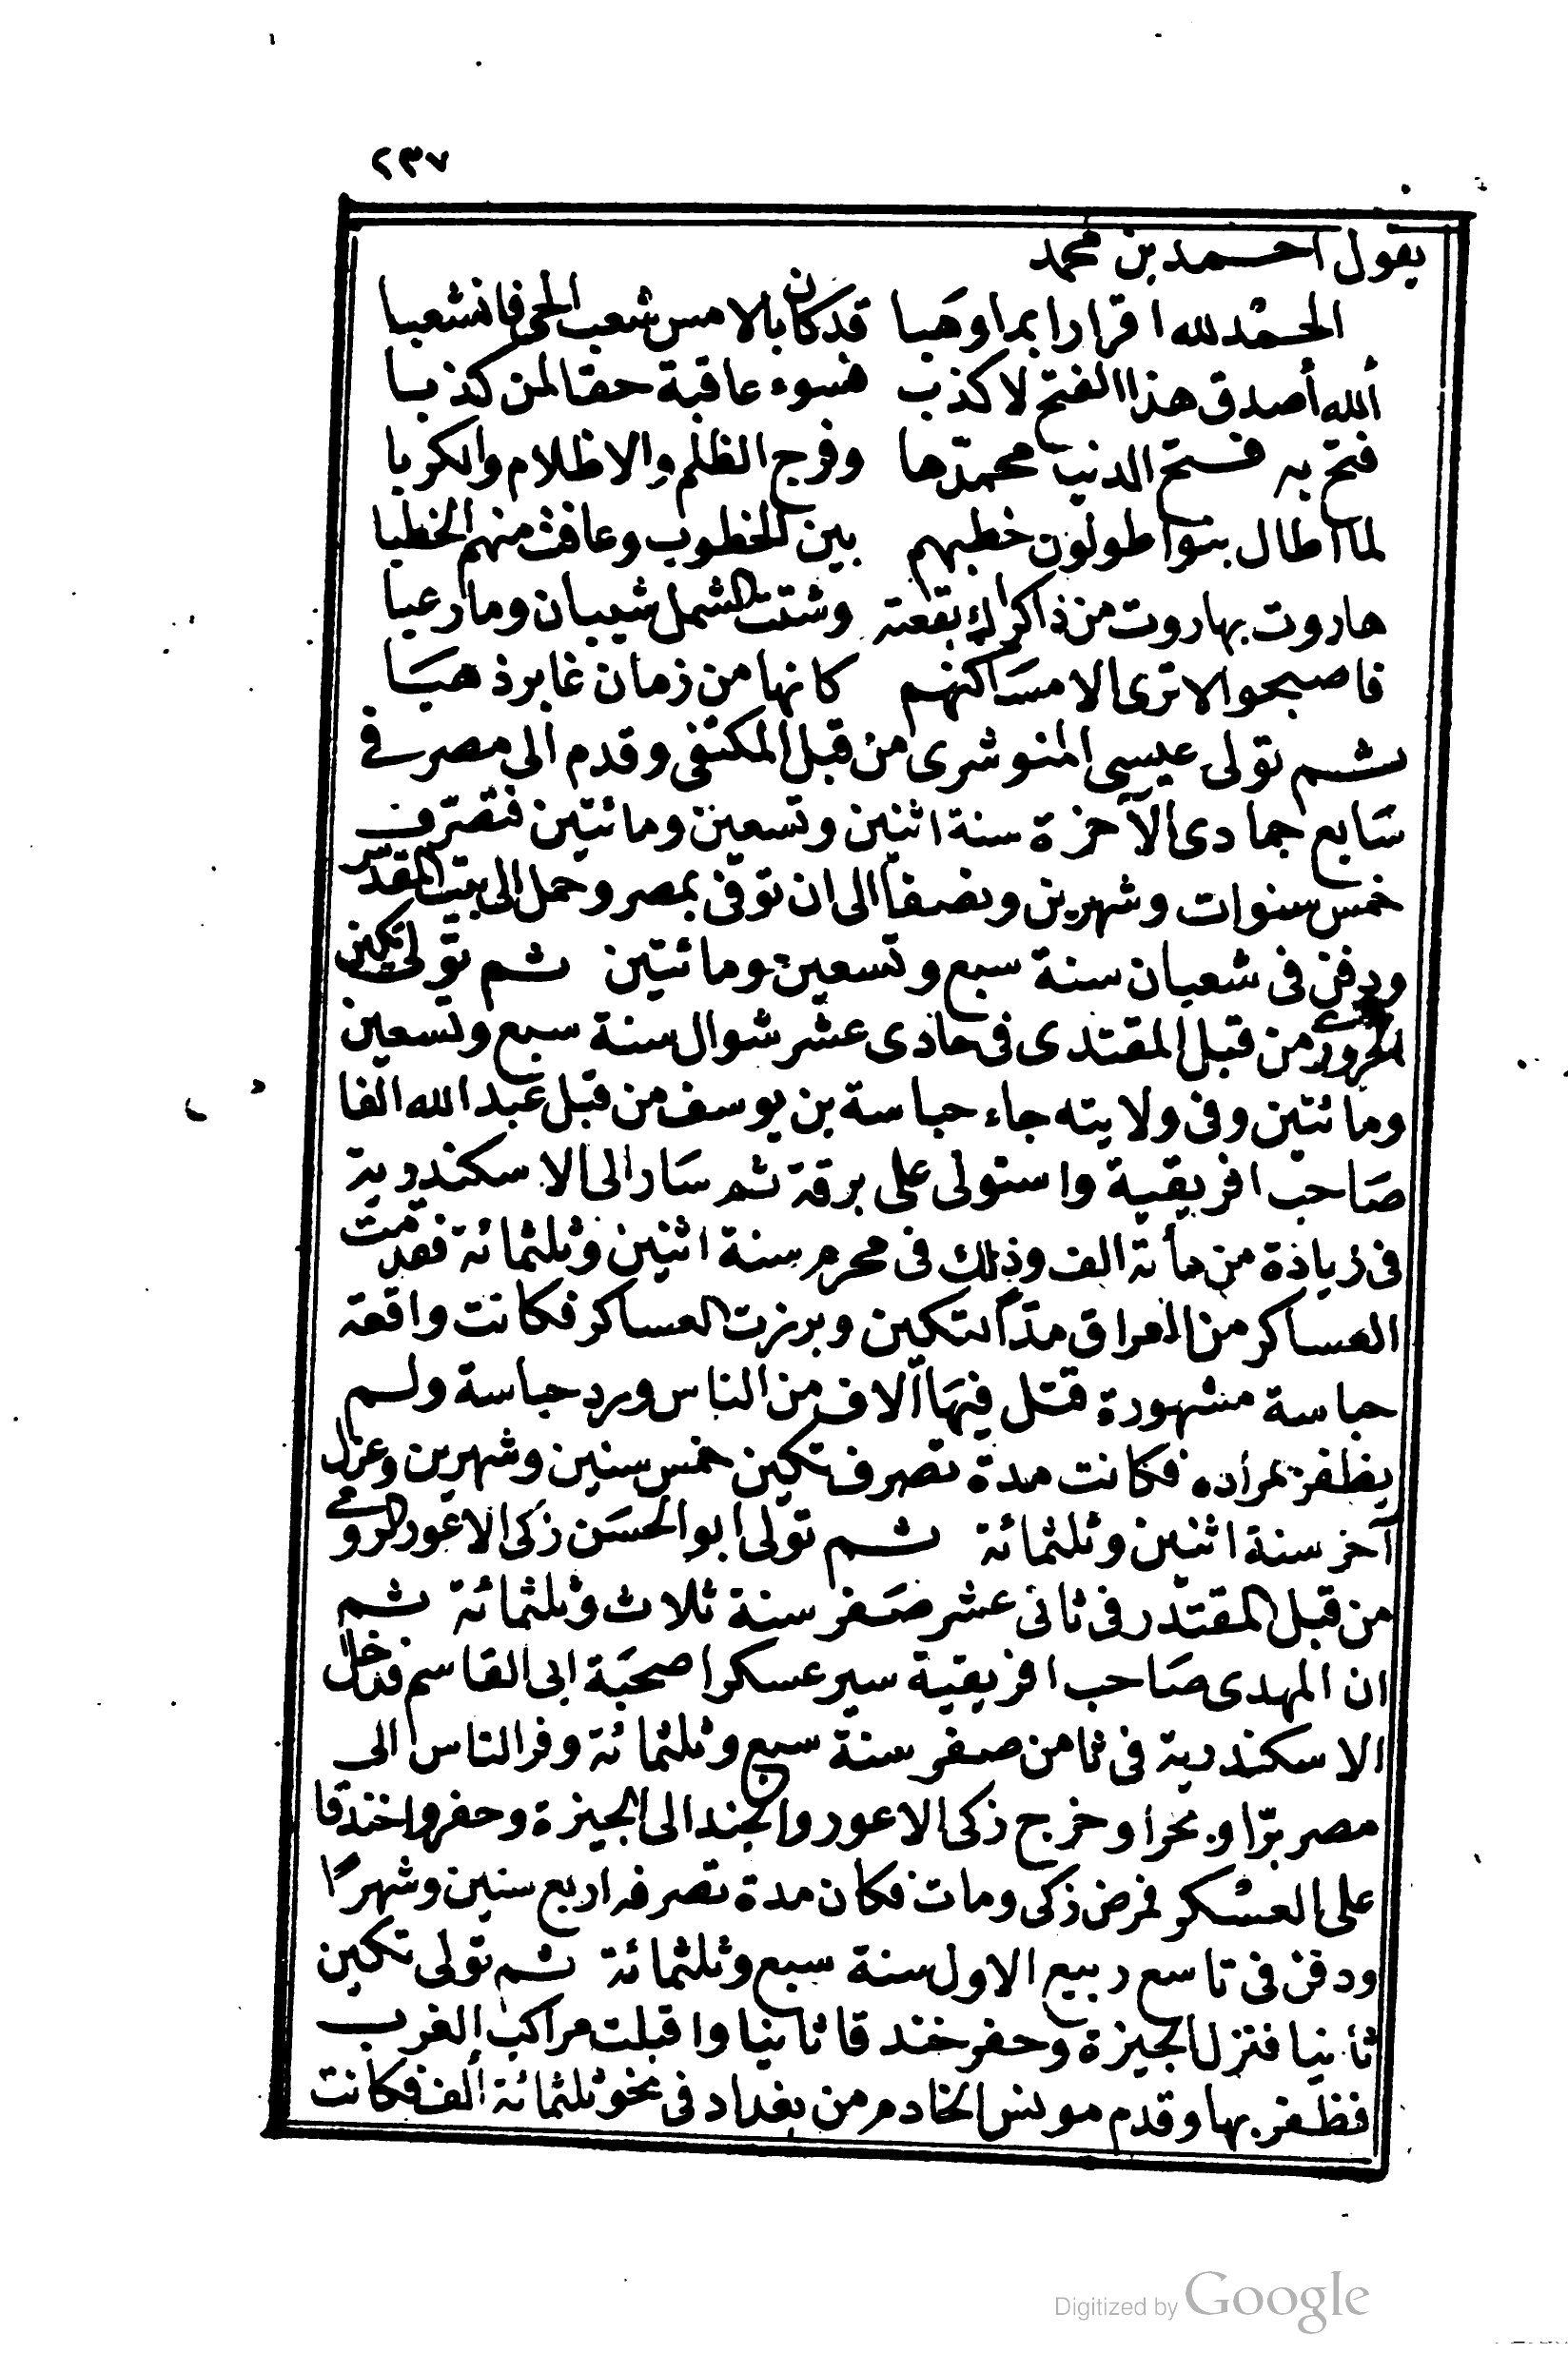 ٢٣٧
يقول احمد بن محمد
الحمد لله اقرارا بما وهبا قد كان بالامس شعب الحي فانشعبا
ألله أصدق هذا الفتح لا كذب فسوء عاقبة حقا لمن كذبا
فتح به فتح الدنيا محمدها وفرج الظلم والاظلام والكربا
لما اطال بنوا طولون خطبهم بين الخطوب وعافت منهم الخطبا
هاروت بهاروت من ذاكراك بقعته وشتت الشمل شيبان وما رعبا
فاصبحوا لا ترى الا مساكنهم كانها من زمان غابر ذهبا
ثم تولى عيسى المنوشرى من قبل المكتفى وقدم الى مصر فى
سابع جمادى الآخرة سنة اثنين وتسعين ومائتين فتصرف
خمس سنوات وشهرين ونصفا الى ان توفى بمصر وحمل الى بيت المقدس
ودفن فى شعبان سنة سبع وتسعين ومائتين ثم تولى تكين
من قبل المقتدى فى حادى عشر شوال سنة سبع وتسعين
ومائتين وفى ولايته جاء حباسة بن يوسف من قبل عبد الله الفا
صاحب افريقية واستولى على برقة ثم سار الى الاسكندرية
فى زيادة من مأتة الف وذلك فى محرم سنة اثنين وثلثمائة فقدمت
العساكر من العراق مددا لتكين وبرزت العساكر فكانت واقعة
حباسة مشهورة قتل فيها آلاف من الناس ورد حباسة ولم
يظفر بمراده فكانت مدة تصرف تكين خمس سنين وشهرين وعزل
آخر سنة اثنين وثلثمائة ثم تولى ابو الحسن زكى الاعور الرومى
من قبل المقتدر فى ثانى عشر صفر سنة ثلاث وثلثمائة ثم
ان المهدى صاحب افريقية سير عسكرا صحبة ابى القاسم فدخل
الاسكندرية فى ثامن صفر سنة سبع وثلثمائة وفر الناس الى
مصر برا وبحرا وخرج زكى الاعور والجند الى الجيزة وحفروا خندقا
على العسكر فمرض زكى ومات فكان مدة تصرفه اربع سنين وشهرًا
ودفن فى تاسع ربيع الاول سنة سبع وثلثمائة ثم تولى تكين
ثانيا فنزل الجيزة وحفر خندقا ثانيا واقبلت مراكب الغرب
فظفر بها وقدم مونس الخادم من بغداد فى نحو ثلثمائة ألف فكانت
Digitized by Google